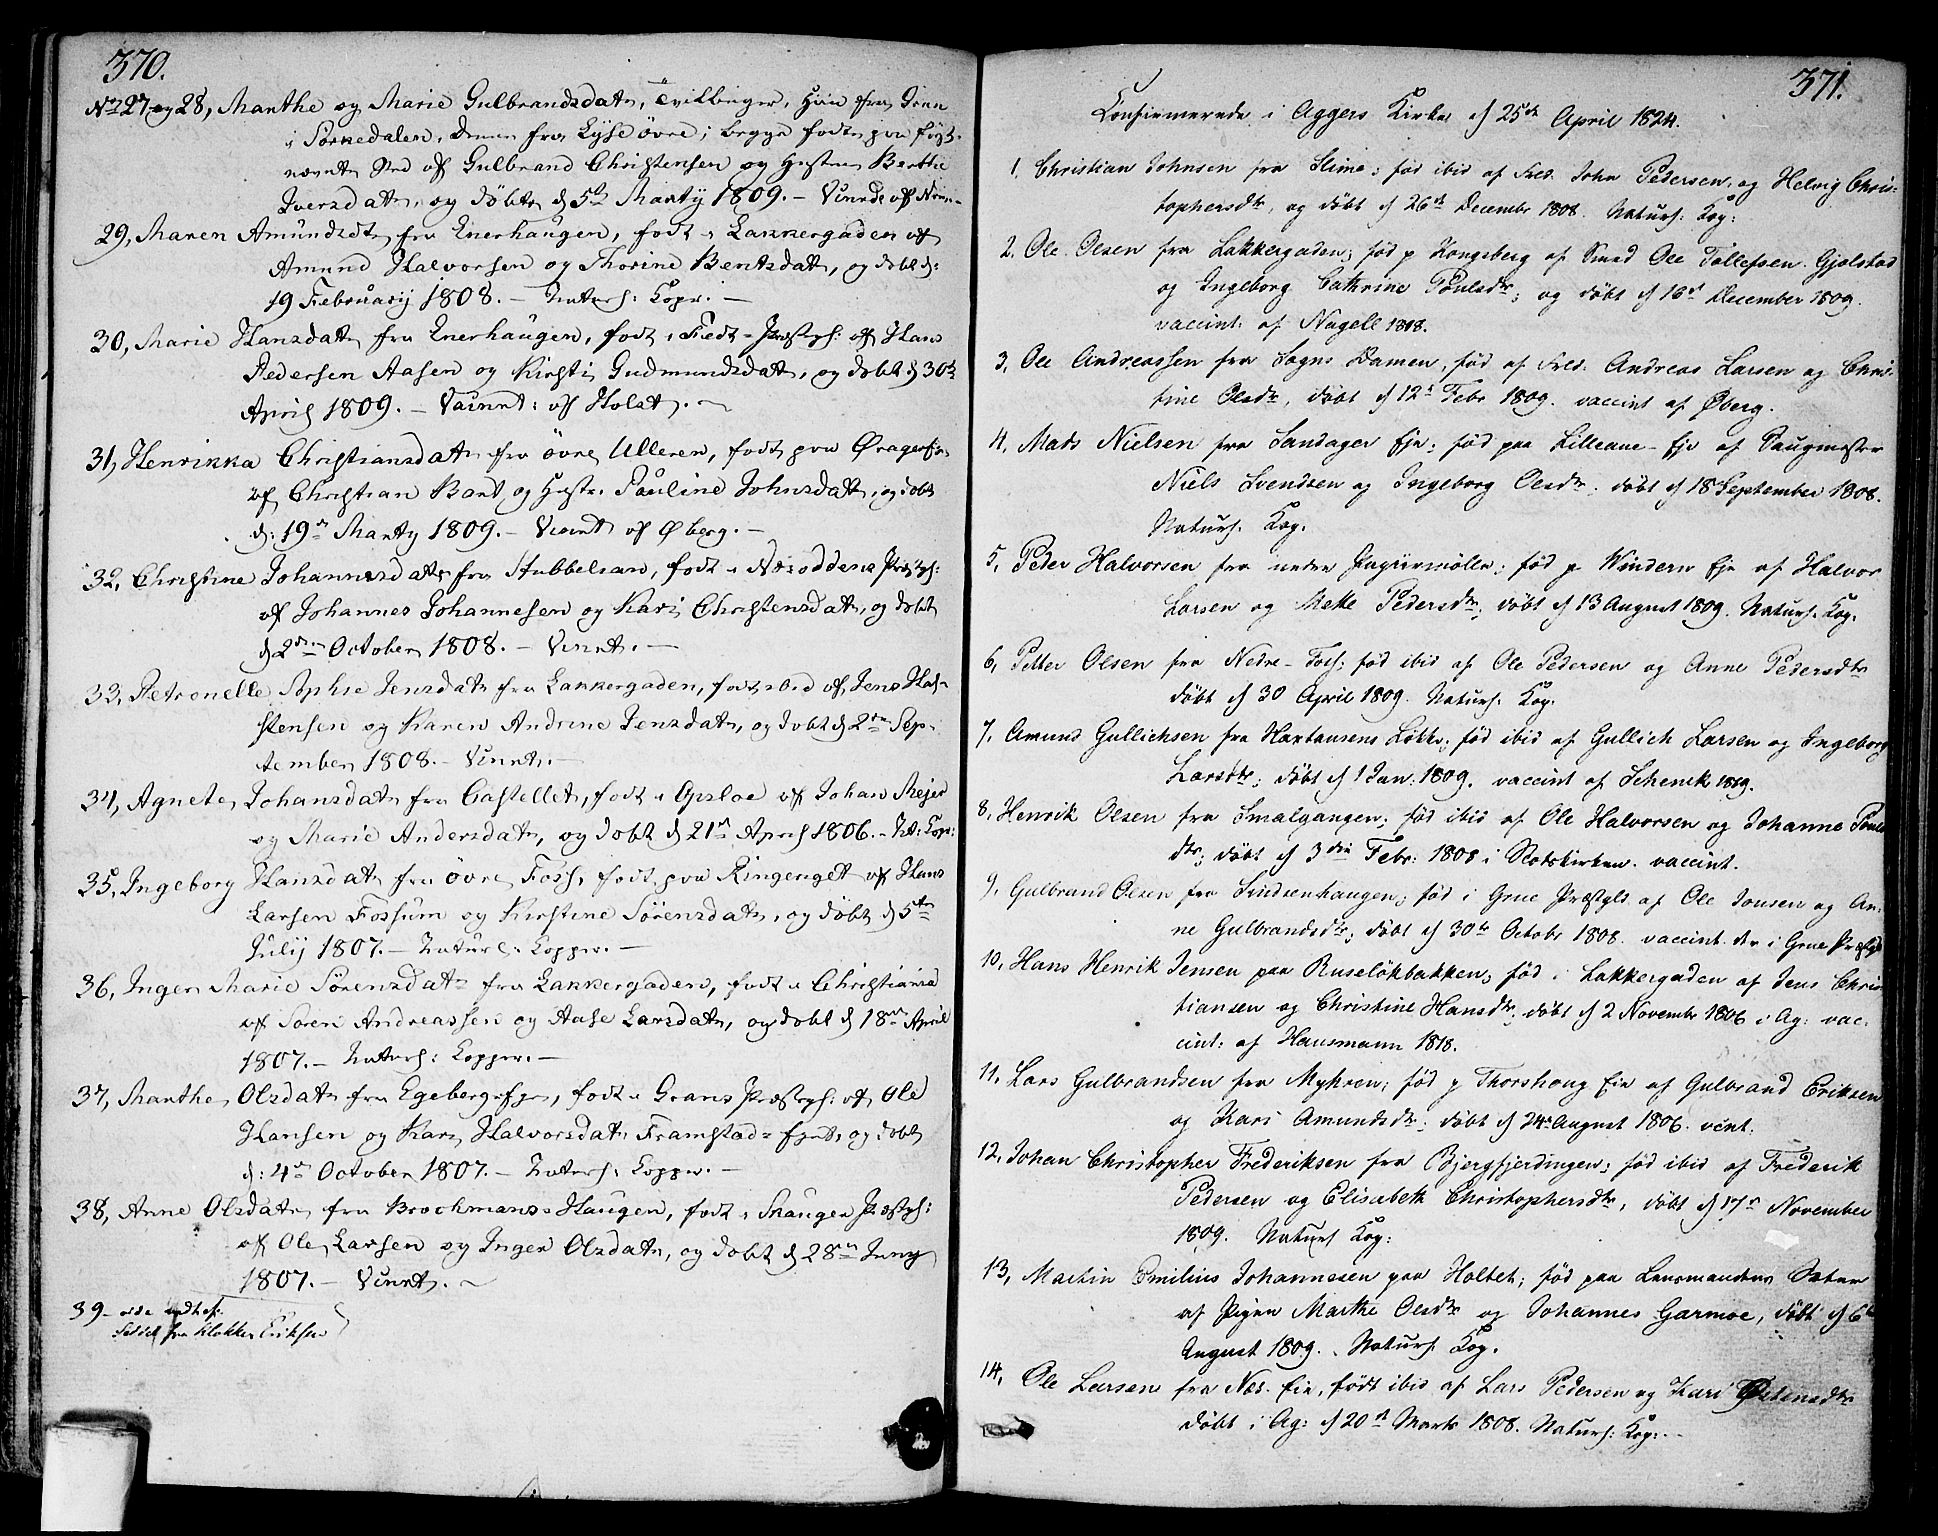 370.
No 27 og 28, Marthe og Marie Gulbrandsdatr, Tvillinger, Hiin fra Grini
i Sørkedalen, Denne fra Lyse øvre; begge fødte paa først-
nævnte Sted af Gulbrand Christensen og Hustru Berthe
Iversdatr, og døbte d 5te Marty 1809. –
29, Maren Amundsdtr fra Enerhaugen, født i Lakkergaden af
Amund Halvorsen og Thorine Bentsdatr, og døbt d:
19 Februarij 1808. – Naturl: Kopr. –
30, Marie Hansdatr fra Enerhaugen, født i Præstgj: af Hans
Pedersen Aasen og Kirsti Gudmundsdatr, og døbt d 30te
April 1809. – Vaccint: af Holst. –
31, Henrikka Christiansdatr fra øvre Ulleren, født paa
af Christian Bart og Hustr: Pauline Johnsdatr, og døbt
d: 19de Marty 1809. – Vaccint af Øberg. –
32, Christine Johannesdatr fra Hubbelsan, født i Næsoddens Præstgj:
af Johannes Johannesen og Kari Christensdatr, og døbt
d 2den October 1808. – Vccint. –
33, Petronelle Sophie Jensdatr fra Lakkergaden, født ibid af Jens Hal-
stensen og Karen Andrine Jensdatr, og døbt d 2den Sep-
tember 1808. – Vccint. –
34, Agnete Johansdatr fra Castellet, født i Opsloe af Johan Mejer
og Marie Andersdatr, og døbt d 21de April 1806. – Nat: Kopr:
35, Ingeborg Hansdatr fra øvre Foss, født paa Ringenget af Hans
Larsen Fossum og Kirstine Sörensdatr, og døbt d 5te
Julij 1807. – Naturl: Kopper. –
36, Inger Marie Sörensdatr fra Lakkergaden, født i Christiania
af Sören Andreassen og Aase Larsdatr, og døbt d 18de April
1807. – Naturl: Kopper. –
37, Marthe Olsdatr fra Egeberg-Ejer, født i Grans Præstgj: af Ole
Hansen og Kari Halvorsdatr Framstad-Ejet, og døbt
d: 4de October 1807. – Naturl: Kopper. –
38, Anne Olsdatr fra Brochmans-Haugen, født i Skauger Præstgj:
af Ole Larsen og Inger Olsdatr, og døbt d 28de Juny
1807. – Vccint. –
39 –
Seddel fra Klokker Eriksen
371.
Confirmerede i Aggers Kirke d 25de April 1824.
1. Christian Johnsen fra Slime; fød ibid af Fred. John Pedersen, og Helvig Chris-
tophersdtr, og døbt d 26de Decembr 1808. Naturl. Kop:
2. Ole Olsen fra Lakkergaden; fød p Kongsberg af Smed Ole Tollefsen Gjolstad
og Ingeborg Cathrine Poulsdtr; og døbt d 16de December 1809.
vaccint. af Nagell 1818.
3. Ole Andreassen fra Sogns Damen; fød af Fred. Andreas Larsen og Chris-
tine Olsdtr, døbt d 12te Febr 1809. vaccint af Øberg.
4. Mads Nielsen fra Sandager Eje; fød paa Lilleaue-Eje af Saugmester
Niels Svendsen og Ingeborg Olsdtr, døbt d 18 September 1808.
Naturl. Kop.
5. Peder Halvorsen fra nedre Papiirmölle; fød p Windern Eje af Halvor
Larsen og Mette Pedersdtr, døbt d 13 August 1809. Naturl. Kop.
6, Petter Olsen fra Nedre-Foss; fød ibid af Ole Pedersen og Anne Pedersdtr
døbt d 30 April 1809. Naturl. Kop.
7, Amund Gullichsen fra Haxtausens Løkke; fød ibid af Gullich Larsen og Ingeborg
Larsdtr; døbt d 1 Jan: 1809. vaccint af Schenck 1819.
8, Henrik Olsen fra Smalgangen; fød ibid af Ole Halvorsen og Johanne Pouls-
dtr; døbt d 3die Febr: 1808 i Slotskirken. vaccint.
9, Gulbrand Olsen fra Sindsenhaugen; fød i Grue Præstgld af Ole Jonsen og An-
ne Gulbrandsdtr; døbt d 30te Octobr 1808. vaccint der i Grue Præstgld
10, Hans Henrik Jensen paa Ruseløkbakken; fød i Lakkergaden af Jens Chris-
tiansen og Christine Hansdtr, døbt d 2 Novembr 1806 i Ag: vac-
cint: af Hausmann 1818.
11, Lars Gulbrandsen fra Myhren; fød p Thorshoug Eie af Gulbrand Eriksen
og Kari Amundsdtr; døbt d 24de August 1806. vcint:
12, Johan Christopher Frederiksen fra Bjergfjerdingen; fød ibid af Frederik
Pedersen og Elisabeth Christophersdtr, døbt d 17de November
1809. Naturl Kop:
13, Martin Emilius Johannesen paa Holtet; fød paa Lensmandens Sæter
af Pigen Marthe Olsdtr og Johannes Garmoe, døbt d 6te
August 1809. Naturl. Kop.
14, Ole Larsen fra Næs-Eie, født ibid af Lars Pedersen og Kari Østensdtr
døbt i Ag: d 20de Marts 1808. Naturl: Kop: –